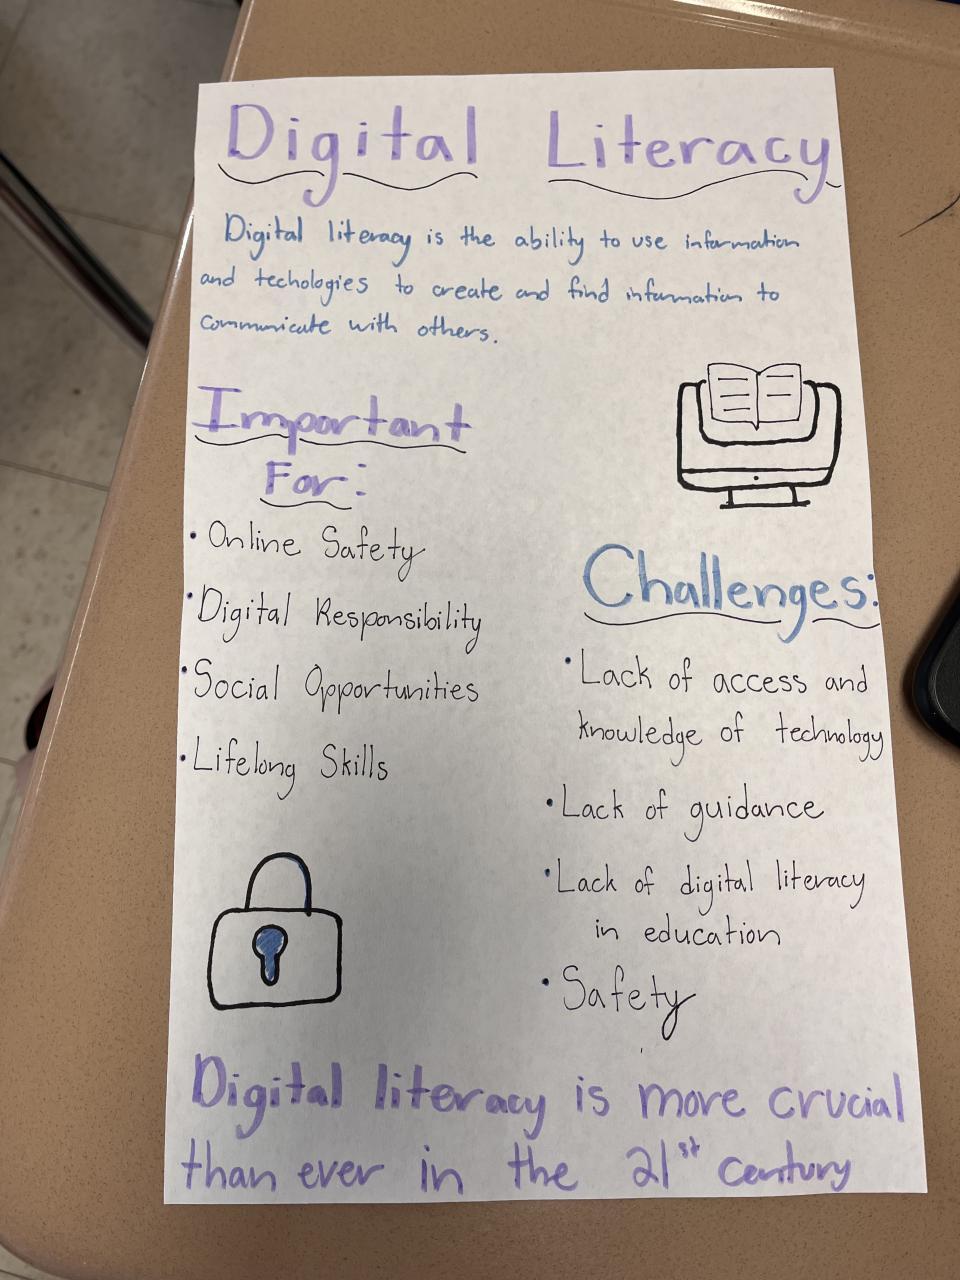 Digital Literacy
Digital literacy is the ability to use information
and techologies to create and find information to
communicate with others.
Important
For:
• Online Safety
• Digital Responsibility
• Social Opportunities
• Lifelong Skills
Challenges:
• Lack of access and
knowledge of technology
• Lack of guidance
• Lack of digital literacy
in education
• Safety
Digital literacy is more crucial
than ever in the 21st century